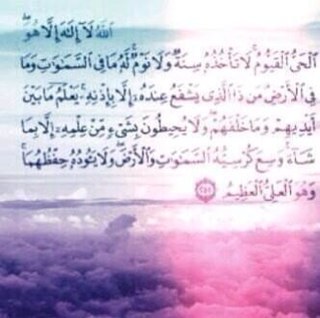 ٱللَّهُ لَآ إِلَٰهَ إِلَّا هُوَ
ٱلْحَىُّ ٱلْقَيُّومُ ۚ لَا تَأْخُذُهُۥ سِنَةٌ وَلَا نَوْمٌ ۚ لَّهُۥ مَا فِى ٱلسَّمَٰوَٰتِ وَمَا
فِى ٱلْأَرْضِ ۗ مَن ذَا ٱلَّذِى يَشْفَعُ عِندَهُۥٓ إِلَّا بِإِذْنِهِۦ ۚ يَعْلَمُ مَا بَيْنَ
أَيْدِيهِمْ وَمَا خَلْفَهُمْ ۖ وَلَا يُحِيطُونَ بِشَىْءٍ مِّنْ عِلْمِهِۦٓ إِلَّا بِمَا
شَآءَ ۚ وَسِعَ كُرْسِيُّهُ ٱلسَّمَٰوَٰتِ وَٱلْأَرْضَ ۖ وَلَا يَـُٔودُهُۥ حِفْظُهُمَا ۚ
وَهُوَ ٱلْعَلِىُّ ٱلْعَظِيمُ ۝٢٥٥